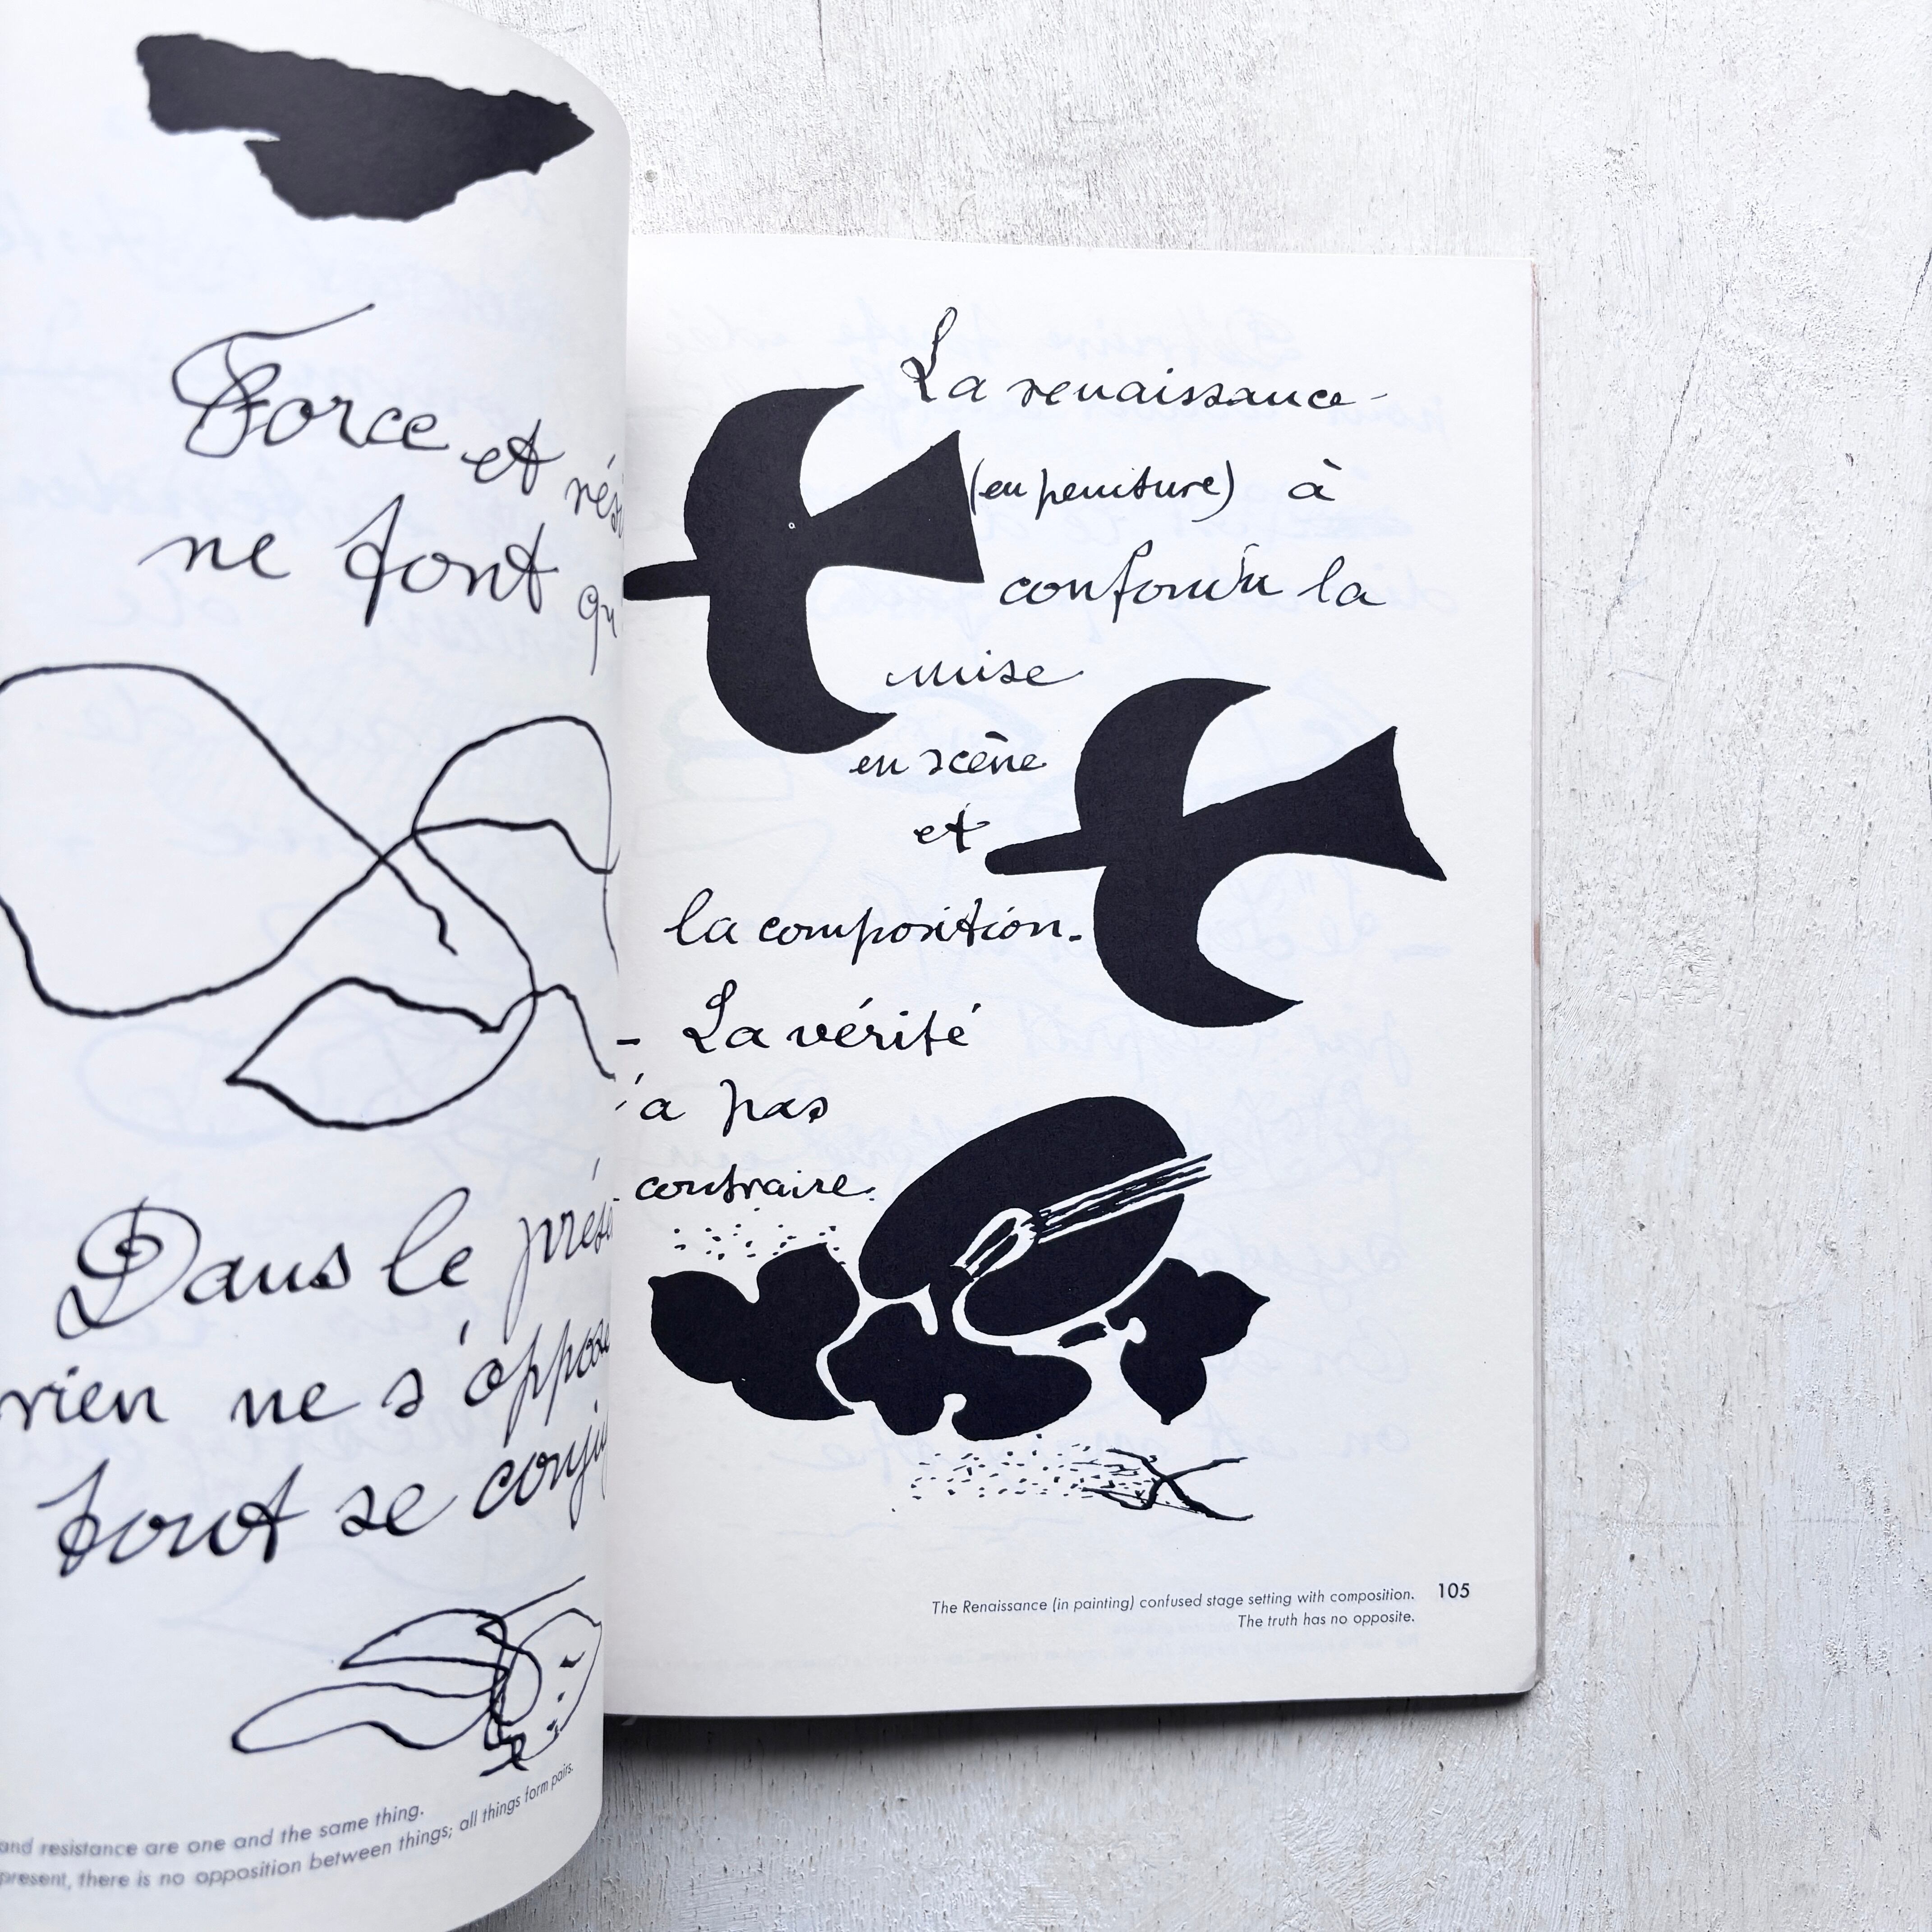 Force et rési
ne font qu
Dans le prése
rien ne s'oppose
tout se conju
and resistance are one and the same thing.
present, there is no opposition between things; all things form pairs.
La renaissance
(en peniture) à
confondu la
mise
en scène
et
la composition.
- La vérité
'a pas
contraire.
The Renaissance (in painting) confused stage setting with composition. 105
The truth has no opposite.